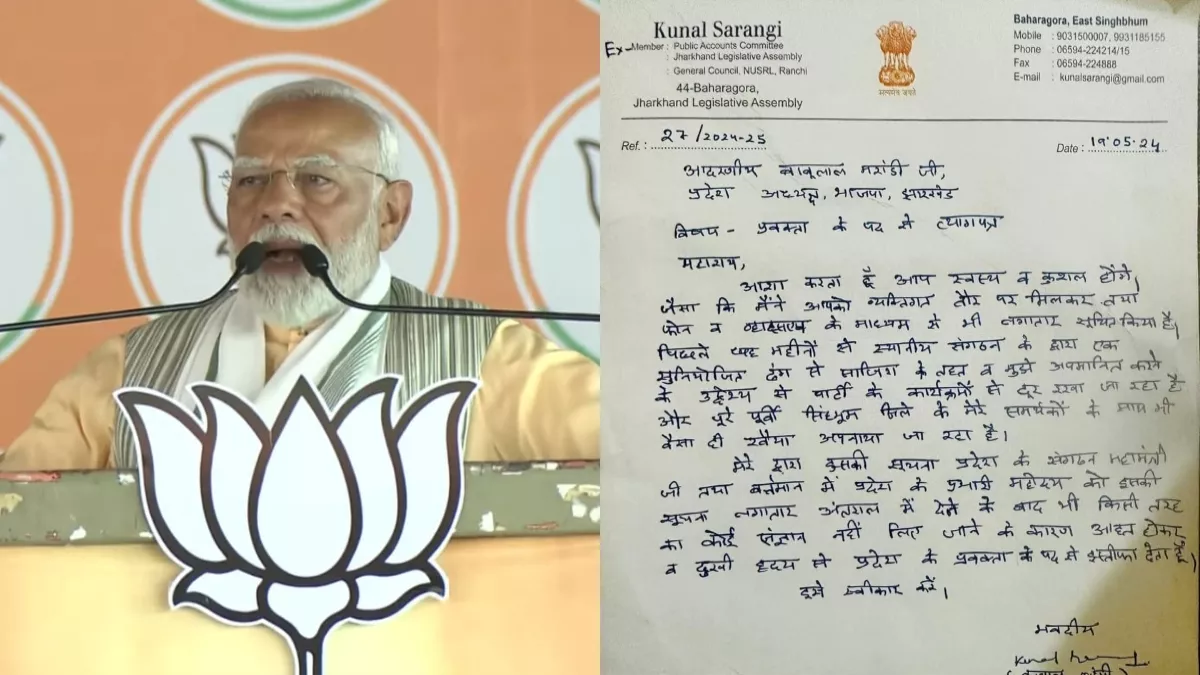 Kunal Sarangi
Ex-Member : Public Accounts Committee
: Jharkhand Legislative Assembly
: General Council, NUSRL, Ranchi
44-Baharagora,
Jharkhand Legislative Assembly
सत्यमेव जयते
Baharagora, East Singhbhum
Mobile : 9031500007, 9931185155
Phone : 06594-224214/15
Fax : 06594-224888
E-mail : kunalsarangi@gmail.com
Ref. : 27/2024-25
Date : 19.05.24
आदरणीय बाबूलाल मरांडी जी,
प्रदेश अध्यक्ष, भाजपा, झारखंड
विषय - प्रवक्ता के पद से त्यागपत्र
महाशय,
आशा करता हूँ आप स्वस्थ व कुशल होंगे,
जैसा कि मैंने आपको व्यक्तिगत तौर पर मिलकर तथा
फोन व व्हाट्सएप के माध्यम से भी लगातार सूचित किया है,
पिछले छह महीनों से स्थानीय संगठन के द्वारा एक
सुनियोजित ढंग से साजिश के तहत व मुझे अपमानित करने
के उद्देश्य से पार्टी के कार्यक्रमों से दूर रखा जा रहा है
और पूरे पूर्वी सिंहभूम जिले के मेरे समर्थकों के साथ भी
वैसा ही रवैया अपनाया जा रहा है।
मेरे द्वारा इसकी सूचना प्रदेश के संगठन महामंत्री
जी तथा वर्तमान में प्रदेश के प्रभारी महोदय को इसकी
सूचना लगातार अंतराल में देने के बाद भी किसी तरह
का कोई संज्ञान नहीं लिए जाने के कारण आहत होकर
व दुखी हृदय से प्रदेश के प्रवक्ता के पद से इस्तीफा देता हूँ,
इसे स्वीकार करें।
भवदीय
Kunal